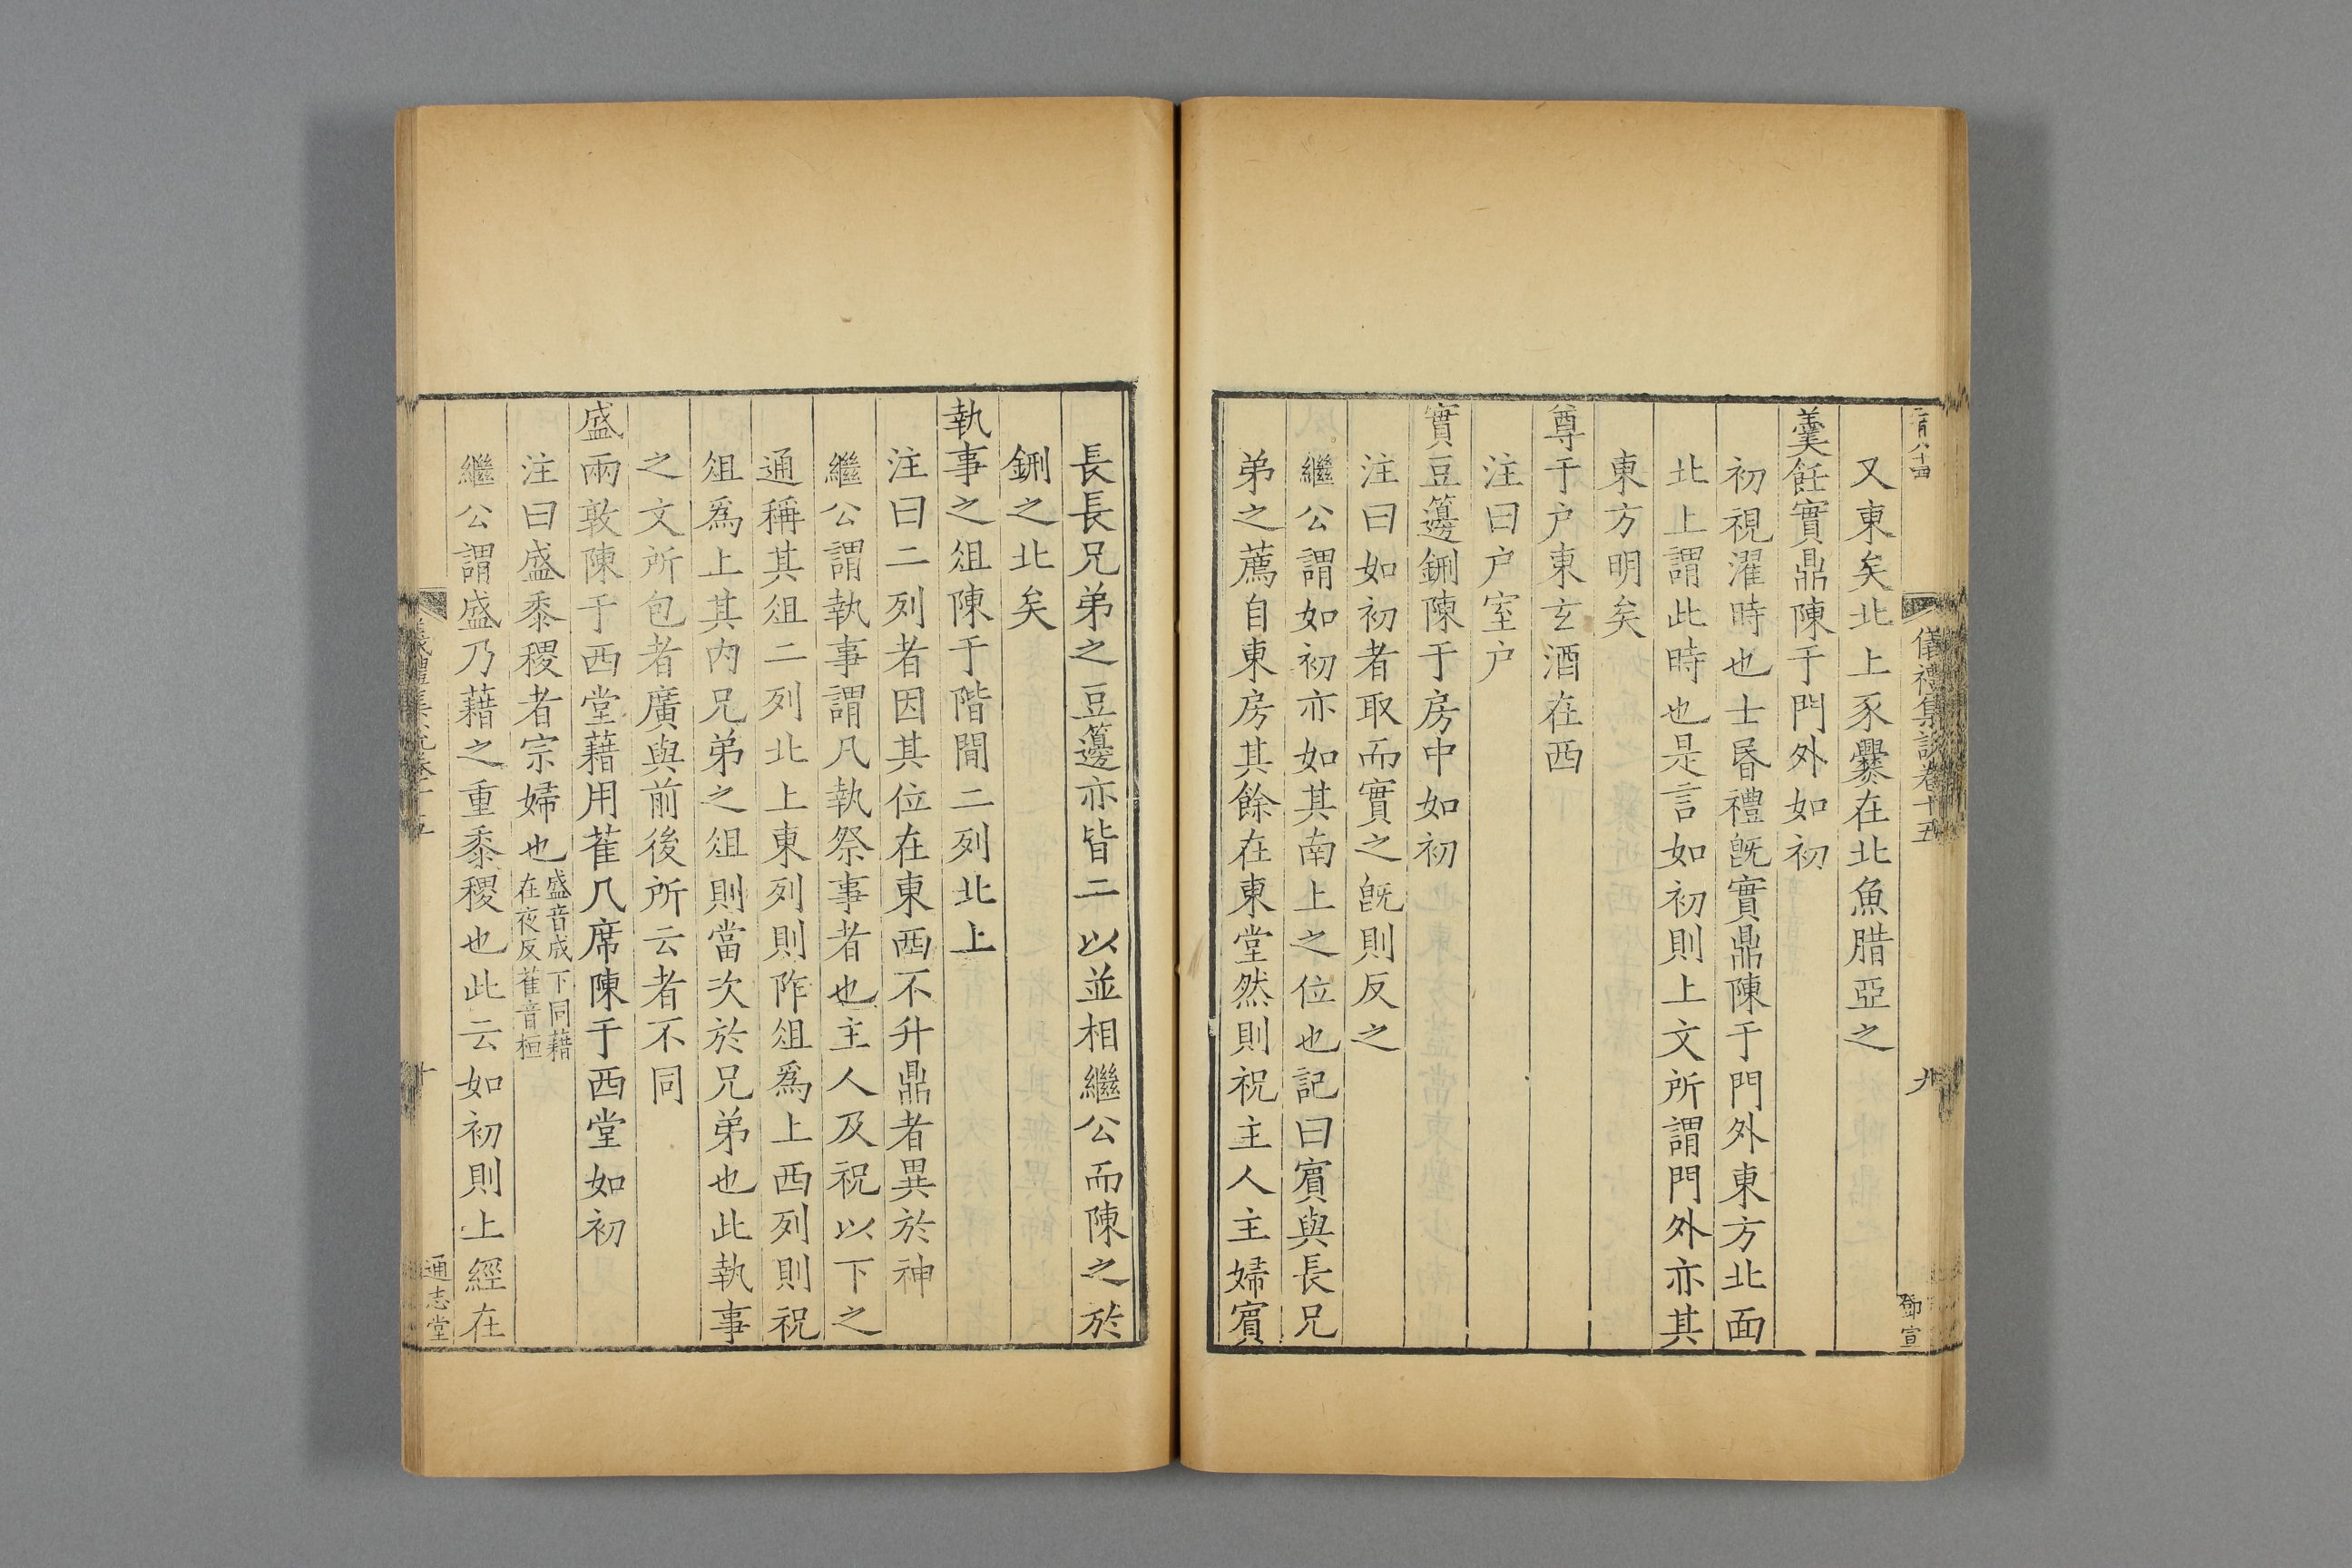 儀禮集說卷十五
九
鄧宣
又東矣北上豕爨在北魚腊亞之
羹飪實鼎陳于門外如初
初視濯時也士昬禮旣實鼎陳于門外東方北面
北上謂此時也是言如初則上文所謂門外亦其
東方明矣
尊于户東玄酒在西
注曰户室户
實豆籩鉶陳于房中如初
注曰如初者取而實之旣則反之
繼公謂如初亦如其南上之位也記曰賓與長兄
弟之薦自東房其餘在東堂然則祝主人主婦賓
長長兄弟之豆籩亦皆二以並相繼公而陳之於
鉶之北矣
執事之俎陳于階閒二列北上
注曰二列者因其位在東西不升鼎者異於神
繼公謂執事謂凡執祭事者也主人及祝以下之
通稱其俎二列北上東列則阼俎爲上西列則祝
俎爲上其内兄弟之俎則當次於兄弟也此執事
之文所包者廣與前後所云者不同
盛兩敦陳于西堂藉用萑几席陳于西堂如初
注曰盛黍稷者宗婦也盛音成下同藉在夜反萑音桓
繼公謂盛乃藉之重黍稷也此云如初則上經在
十
通志堂